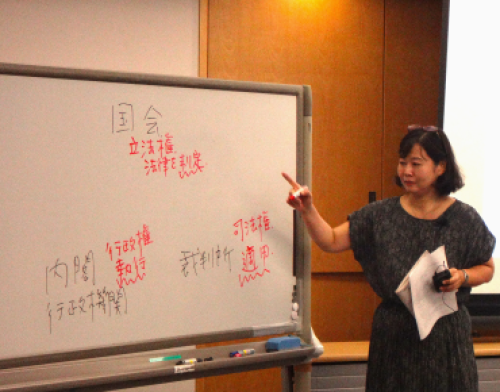 国会
立法権
法律を制定
内閣
行政権
執行
行政機関
裁判所
司法権
適用